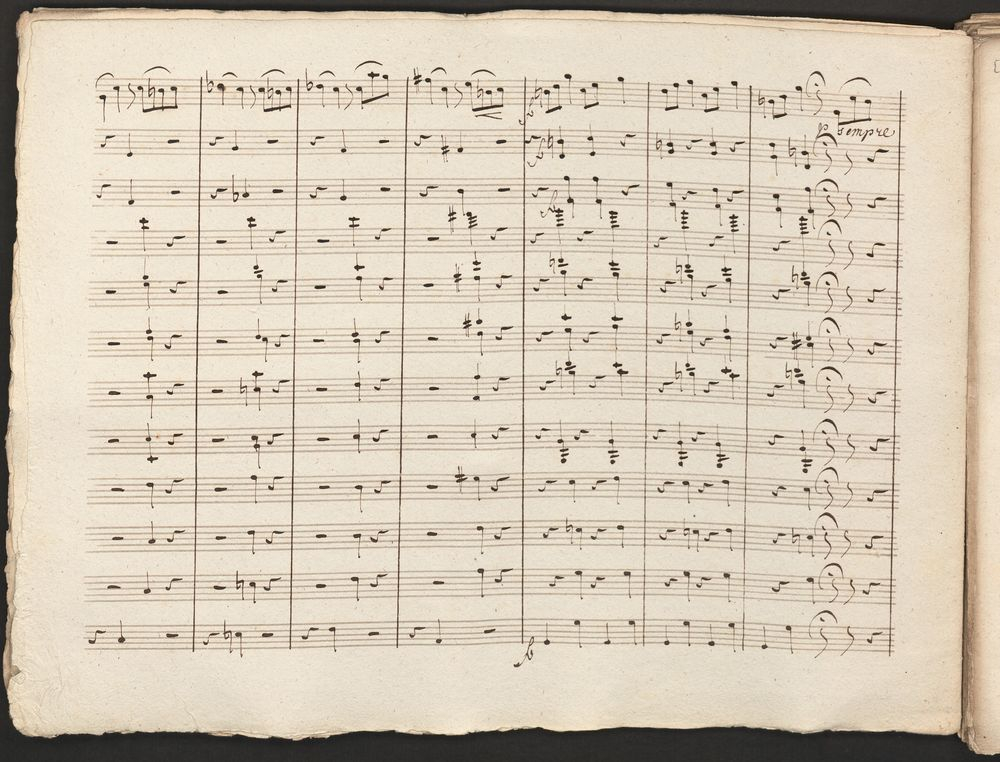 p sempre